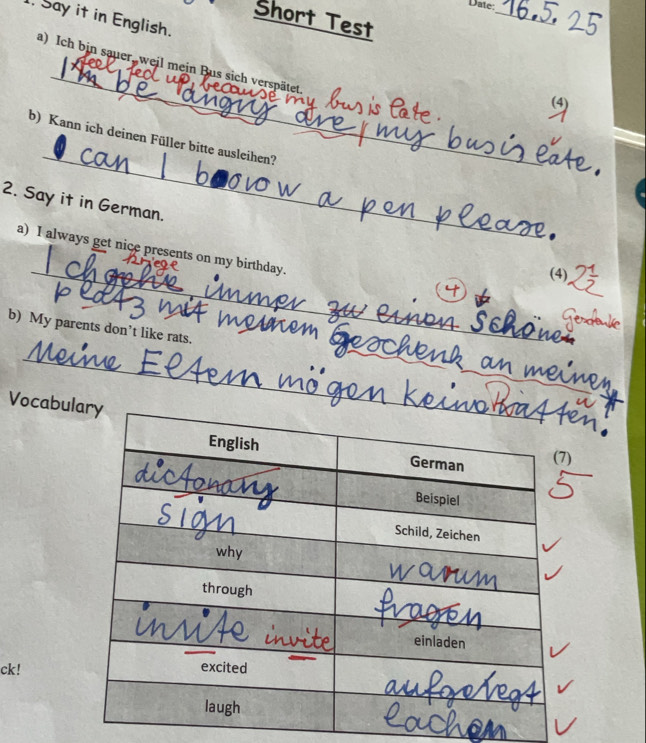 1. Say it in English.
Short Test
Date: 16.5.25
a) Ich bin sauer, weil mein Bus sich verspätet.
feel fed up, because my bus is late.
I'm be angry are my bus is late.
(4)
1
b) Kann ich deinen Füller bitte ausleihen?
I can I borow a pen please.
2. Say it in German.
a) I always get nice presents on my birthday.
kriege
(4) 2 1/2
Ich gehe immer zu einen schönen
4
Geschenke
platz mit meinem Geschenk an meinen
b) My parents don't like rats.
Meine Eltern mögen keine Ratten.
Vocabulary
English German
(7)
5
dictonary Beispiel
sign Schild, Zeichen
why warum
through fragen
invite invite einladen
ck!
excited aufgeregt
laugh lachen